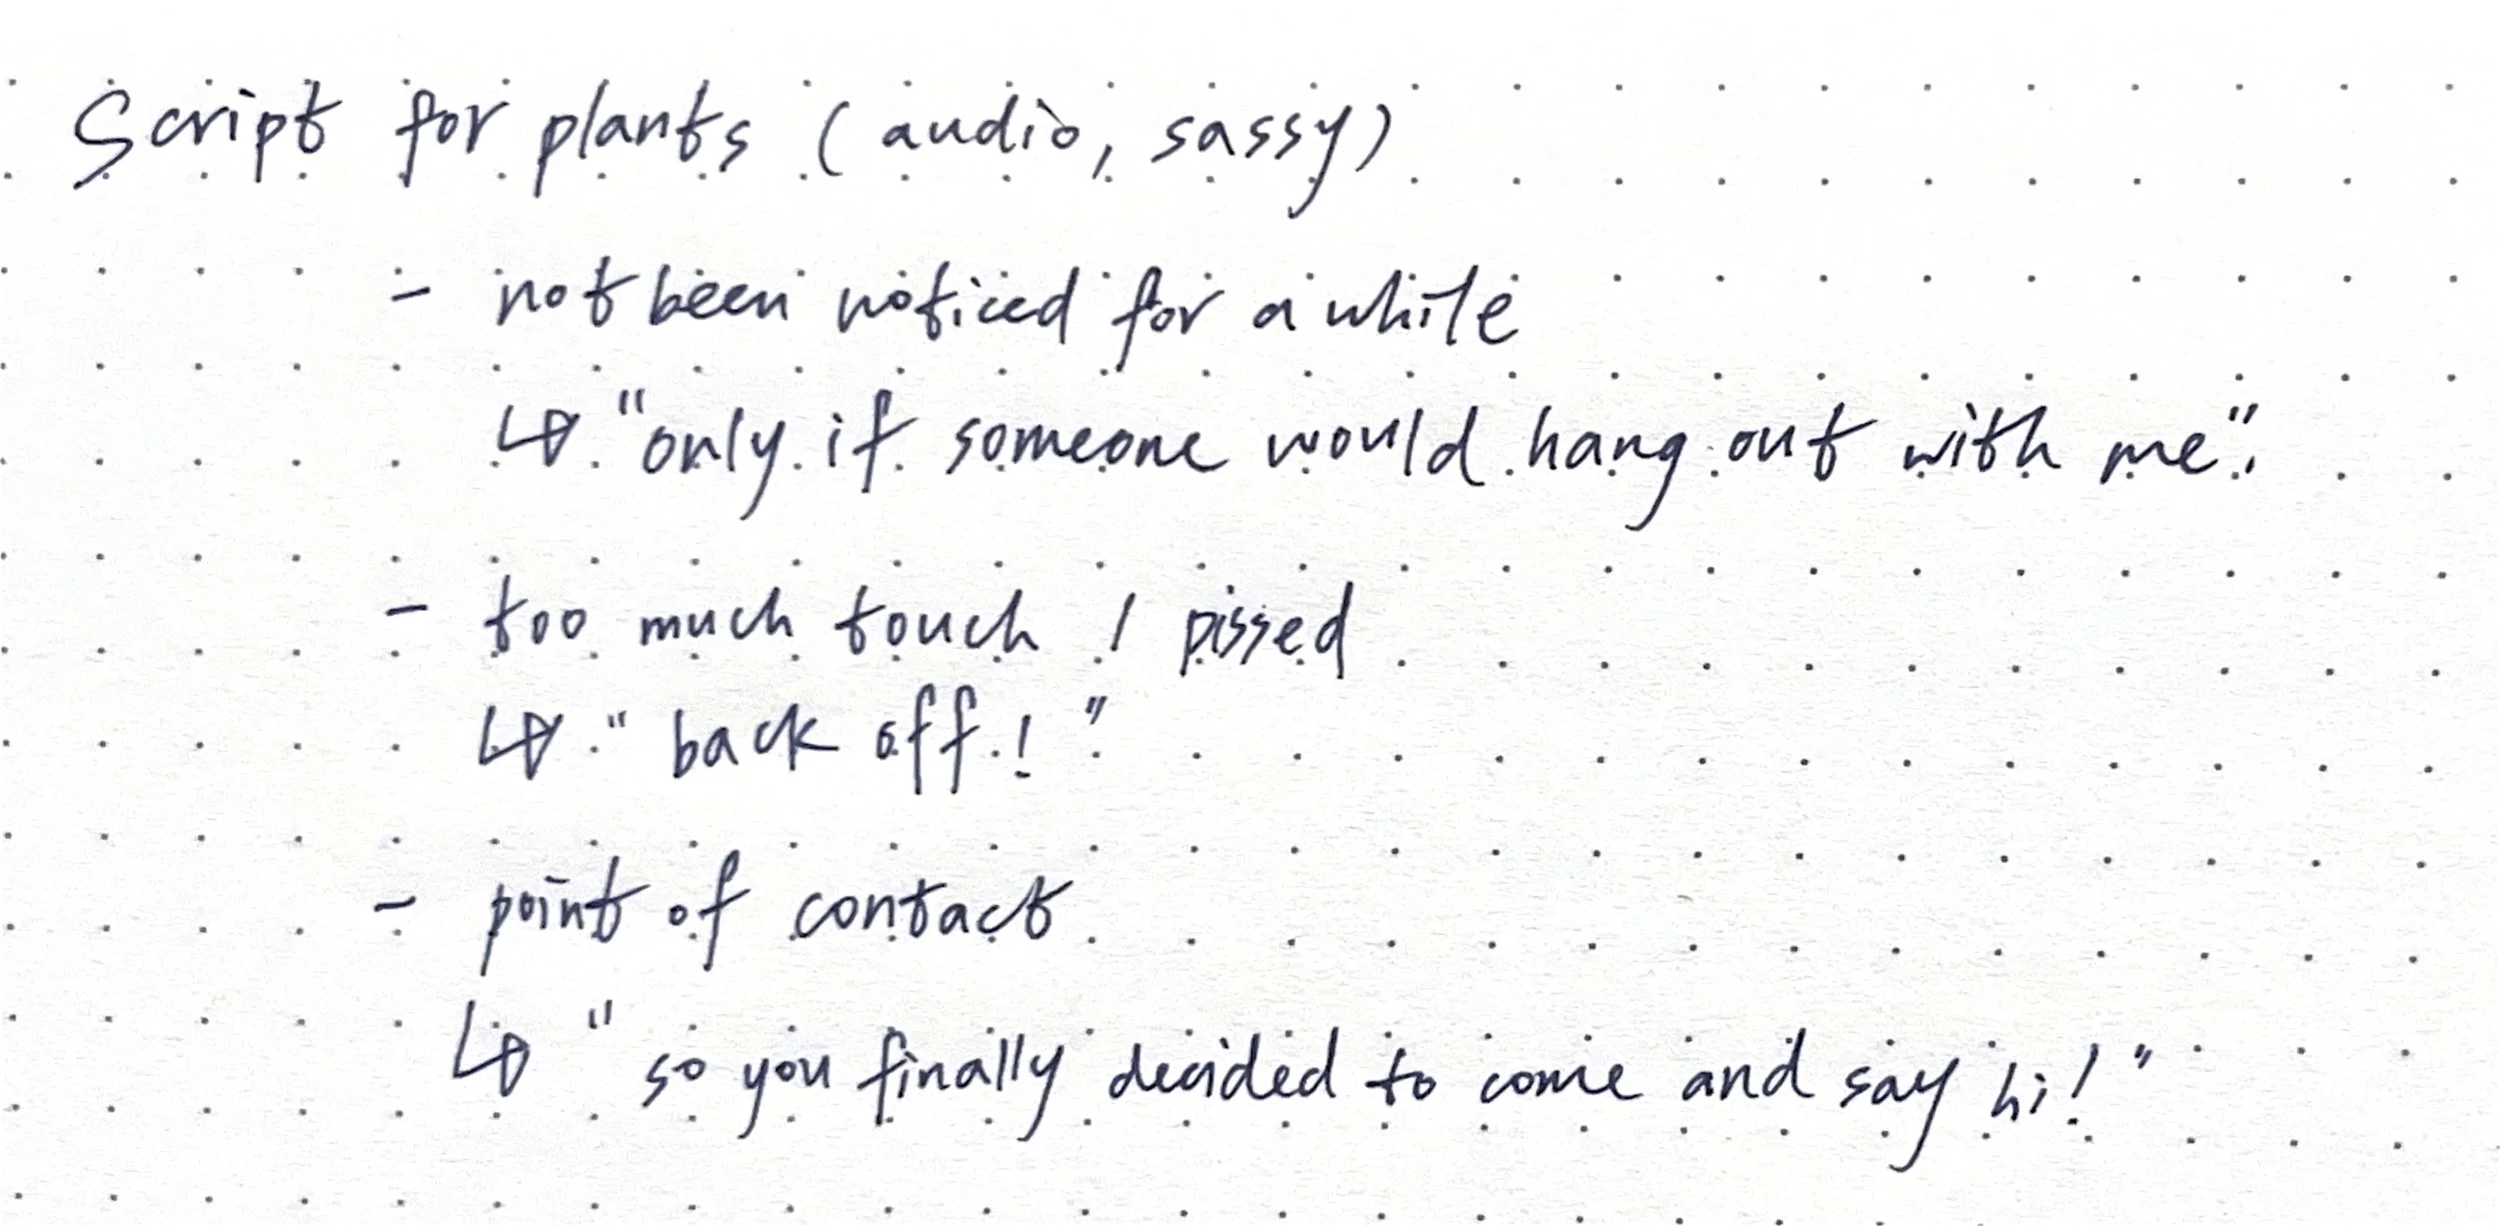 Script for plants (audio, sassy)
- not been noticed for a while
↳ "only if someone would hang out with me".
- too much touch / pissed
↳ "back off!"
- point of contact
↳ "so you finally decided to come and say hi!"